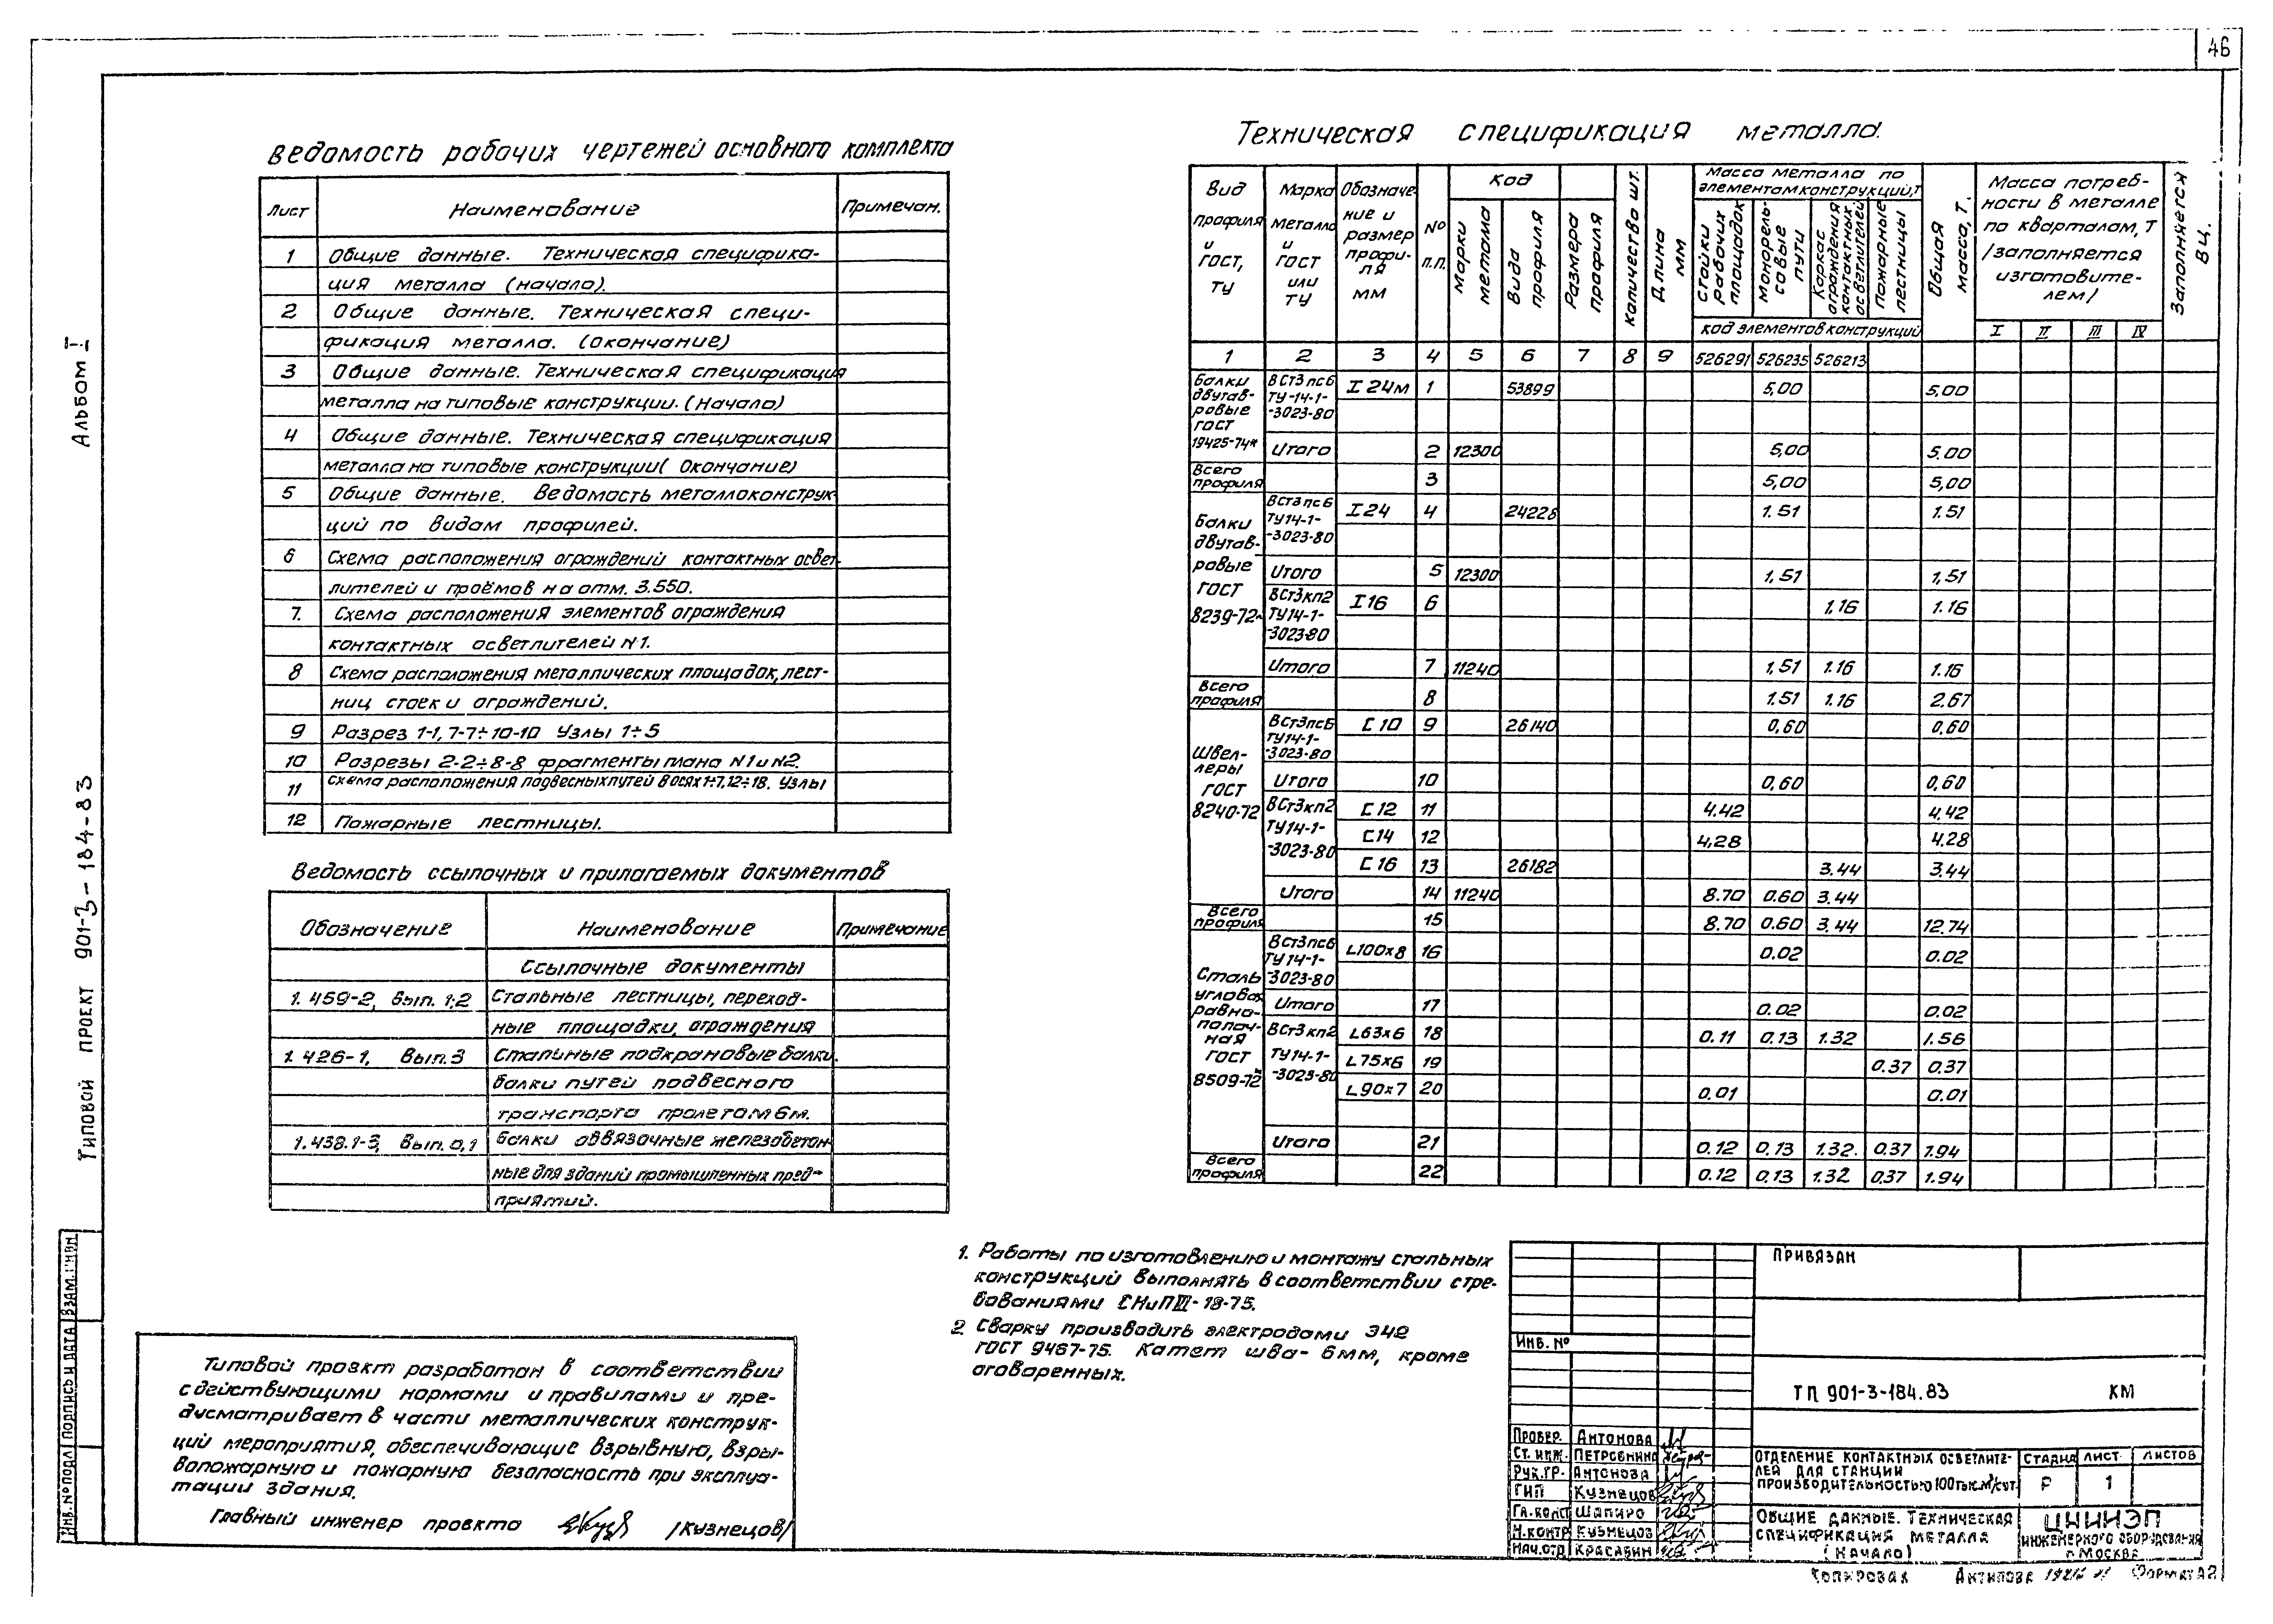 46
Альбом I
Типовой проект 901-3-184-83
Ведомость рабочих чертежей основного комплекта
Лист Наименование Примечан.
1 Общие данные. Техническая специфика-
ция металла (начало).
2 Общие данные. Техническая специ-
фикация металла. (окончание)
3 Общие данные. Техническая спецификация
металла на типовые конструкции. (Начало)
4 Общие данные. Техническая спецификация
металла на типовые конструкции( Окончание)
5 Общие данные. Ведомость металлоконструк-
ций по видам профилей.
6 Схема расположения ограждений контактных освет-
лителей и проёмов на отм. 3.550.
7. Схема расположения элементов ограждения
контактных осветлителей N1.
8 Схема расположения металлических площадок, лест-
ниц стоек и ограждений.
9 Разрез 1-1, 7-7÷10-10 Узлы 1÷5
10 Разрезы 2-2÷8-8 фрагменты плана N1 и N2.
11 Схема расположения подвесных путей в осях 1÷7, 12÷18. Узлы
12 Пожарные лестницы.
Ведомость ссылочных и прилагаемых документов
Обозначение Наименование Примечание
Ссылочные документы
1.459-2, вып. 1;2 Стальные лестницы, переход-
ные площадки, ограждения
1.426-1, Вып.3 Стальные подкрановые балки.
балки путей подвесного
транспорта пролетам 6м.
1.438.1-3, Вып.0,1 балки обвязочные железобетон-
ные для зданий промышленных пред-
приятий.
Техническая спецификация металла.
Вид профиля и ГОСТ, ТУ
Марка металла и ГОСТ или ТУ
Обозначение и размер профиля мм
№ п.п.
Код
Марки металла
Вида профиля
Размера профиля
Количество шт.
Длина мм
Масса металла по элементам конструкций, т
Стойки рабочих площадок
Монорельсовые пути
Каркас ограждения контактных осветлителей
Пожарные лестницы
код элементов конструкций
Общая масса, т.
Масса потреб-
ности в металле
по кварталам, т
/заполняется
изготовите-
лем/
I II III IV
Заполняется ВЦ.
1 2 3 4 5 6 7 8 9 526291 526235 526213
Балки двутавровые ГОСТ 19425-74*
ВСт3пс6 ТУ-14-1-3023-80 I 24м 1 53899 5,00 5,00
Итого 2 12300 5,00 5.00
Всего профиля 3 5,00 5,00
Балки двутавровые ГОСТ 8239-72*
ВСт3пс6 ТУ14-1-3023-80 I 24 4 24228 1.51 1.51
Итого 5 12300 1,51 1,51
ВСт3кп2 ТУ14-1-3023-80 I 16 6 1.16 1.16
Итого 7 11240 1,51 1.16 1.16
Всего профиля 8 1.51 1.16 2.67
Швеллеры ГОСТ 8240-72
ВСт3пс6 ТУ14-1-3023-80 С 10 9 26140 0,60 0,60
Итого 10 0,60 0,60
ВСт3кп2 ТУ14-1-3023-80 С 12 11 4.42 4,42
С14 12 4,28 4.28
С 16 13 26182 3.44 3.44
Итого 14 11240 8.70 0.60 3.44
Всего профиля 15 8.70 0.60 3.44 12.74
Сталь угловая равнополочная ГОСТ 8509-72*
ВСт3пс6 ТУ14-1-3023-80 L100x8 16 0.02 0.02
Итого 17 0.02 0.02
ВСт3кп2 ТУ14-1-3023-80 L63x6 18 0.11 0.13 1.32 1.56
L75x6 19 0.37 0.37
L90x7 20 0.01 0.01
Итого 21 0.12 0.13 1.32. 0.37 1.94
Всего профиля 22 0.12 0.13 1.32 0.37 1.94
1. Работы по изготовлению и монтажу стальных
конструкций выполнять в соответствии с тре-
бованиями СНиП III-18-75.
2 Сварку производить электродами Э42
ГОСТ 9467-75. Катет шва- 6мм, кроме
оговоренных.
Типовой проэкт разработан в соответствии
с действующими нормами и правилами и пре-
дусматривает в части металлических конструк-
ций мероприятия, обеспечивающие взрывную, взры-
вопожарную и пожарную безопасность при эксплуа-
тации здания.
Главный инженер проекта /Кузнецов/
Инв.№подл Подпись и дата Взам.инв№
Привязан
Инв. №
ТП 901-3-184.83 КМ
Провер. Антонова
Ст. инж. Петровнина
Рук.гр. Антонова
ГИП Кузнецов
Гл.конст Шапиро
Н.контр Кузнецов
Нач.отд Красавин
Отделение контактных осветлите-
лей для станции
производительностью 100 тыс.м³/сут.
Стадия Лист Листов
Р 1
Общие данные. Техническая
спецификация металла
(начало)
ЦНИИЭП
инженерного оборудования
г. Москва
Копировал Антипова Формат А2